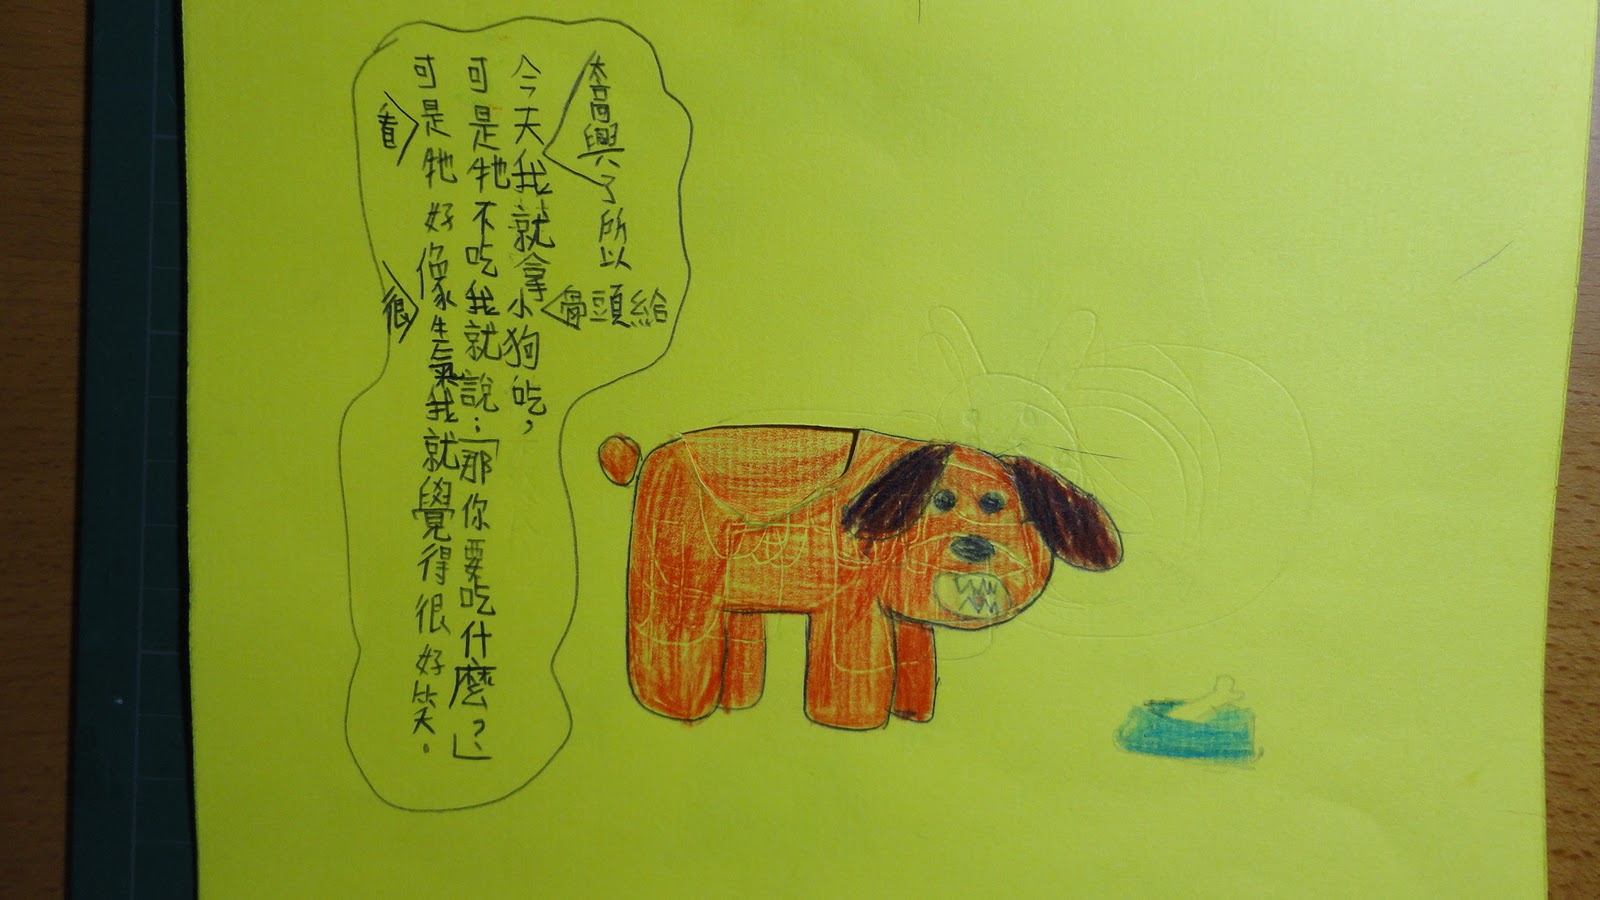 太高興了所以
骨頭給
今天我就拿小狗吃，
可是牠不吃我就說：「那你要吃什麼？」
可是牠好像生氣我就覺得很好笑。
看
很